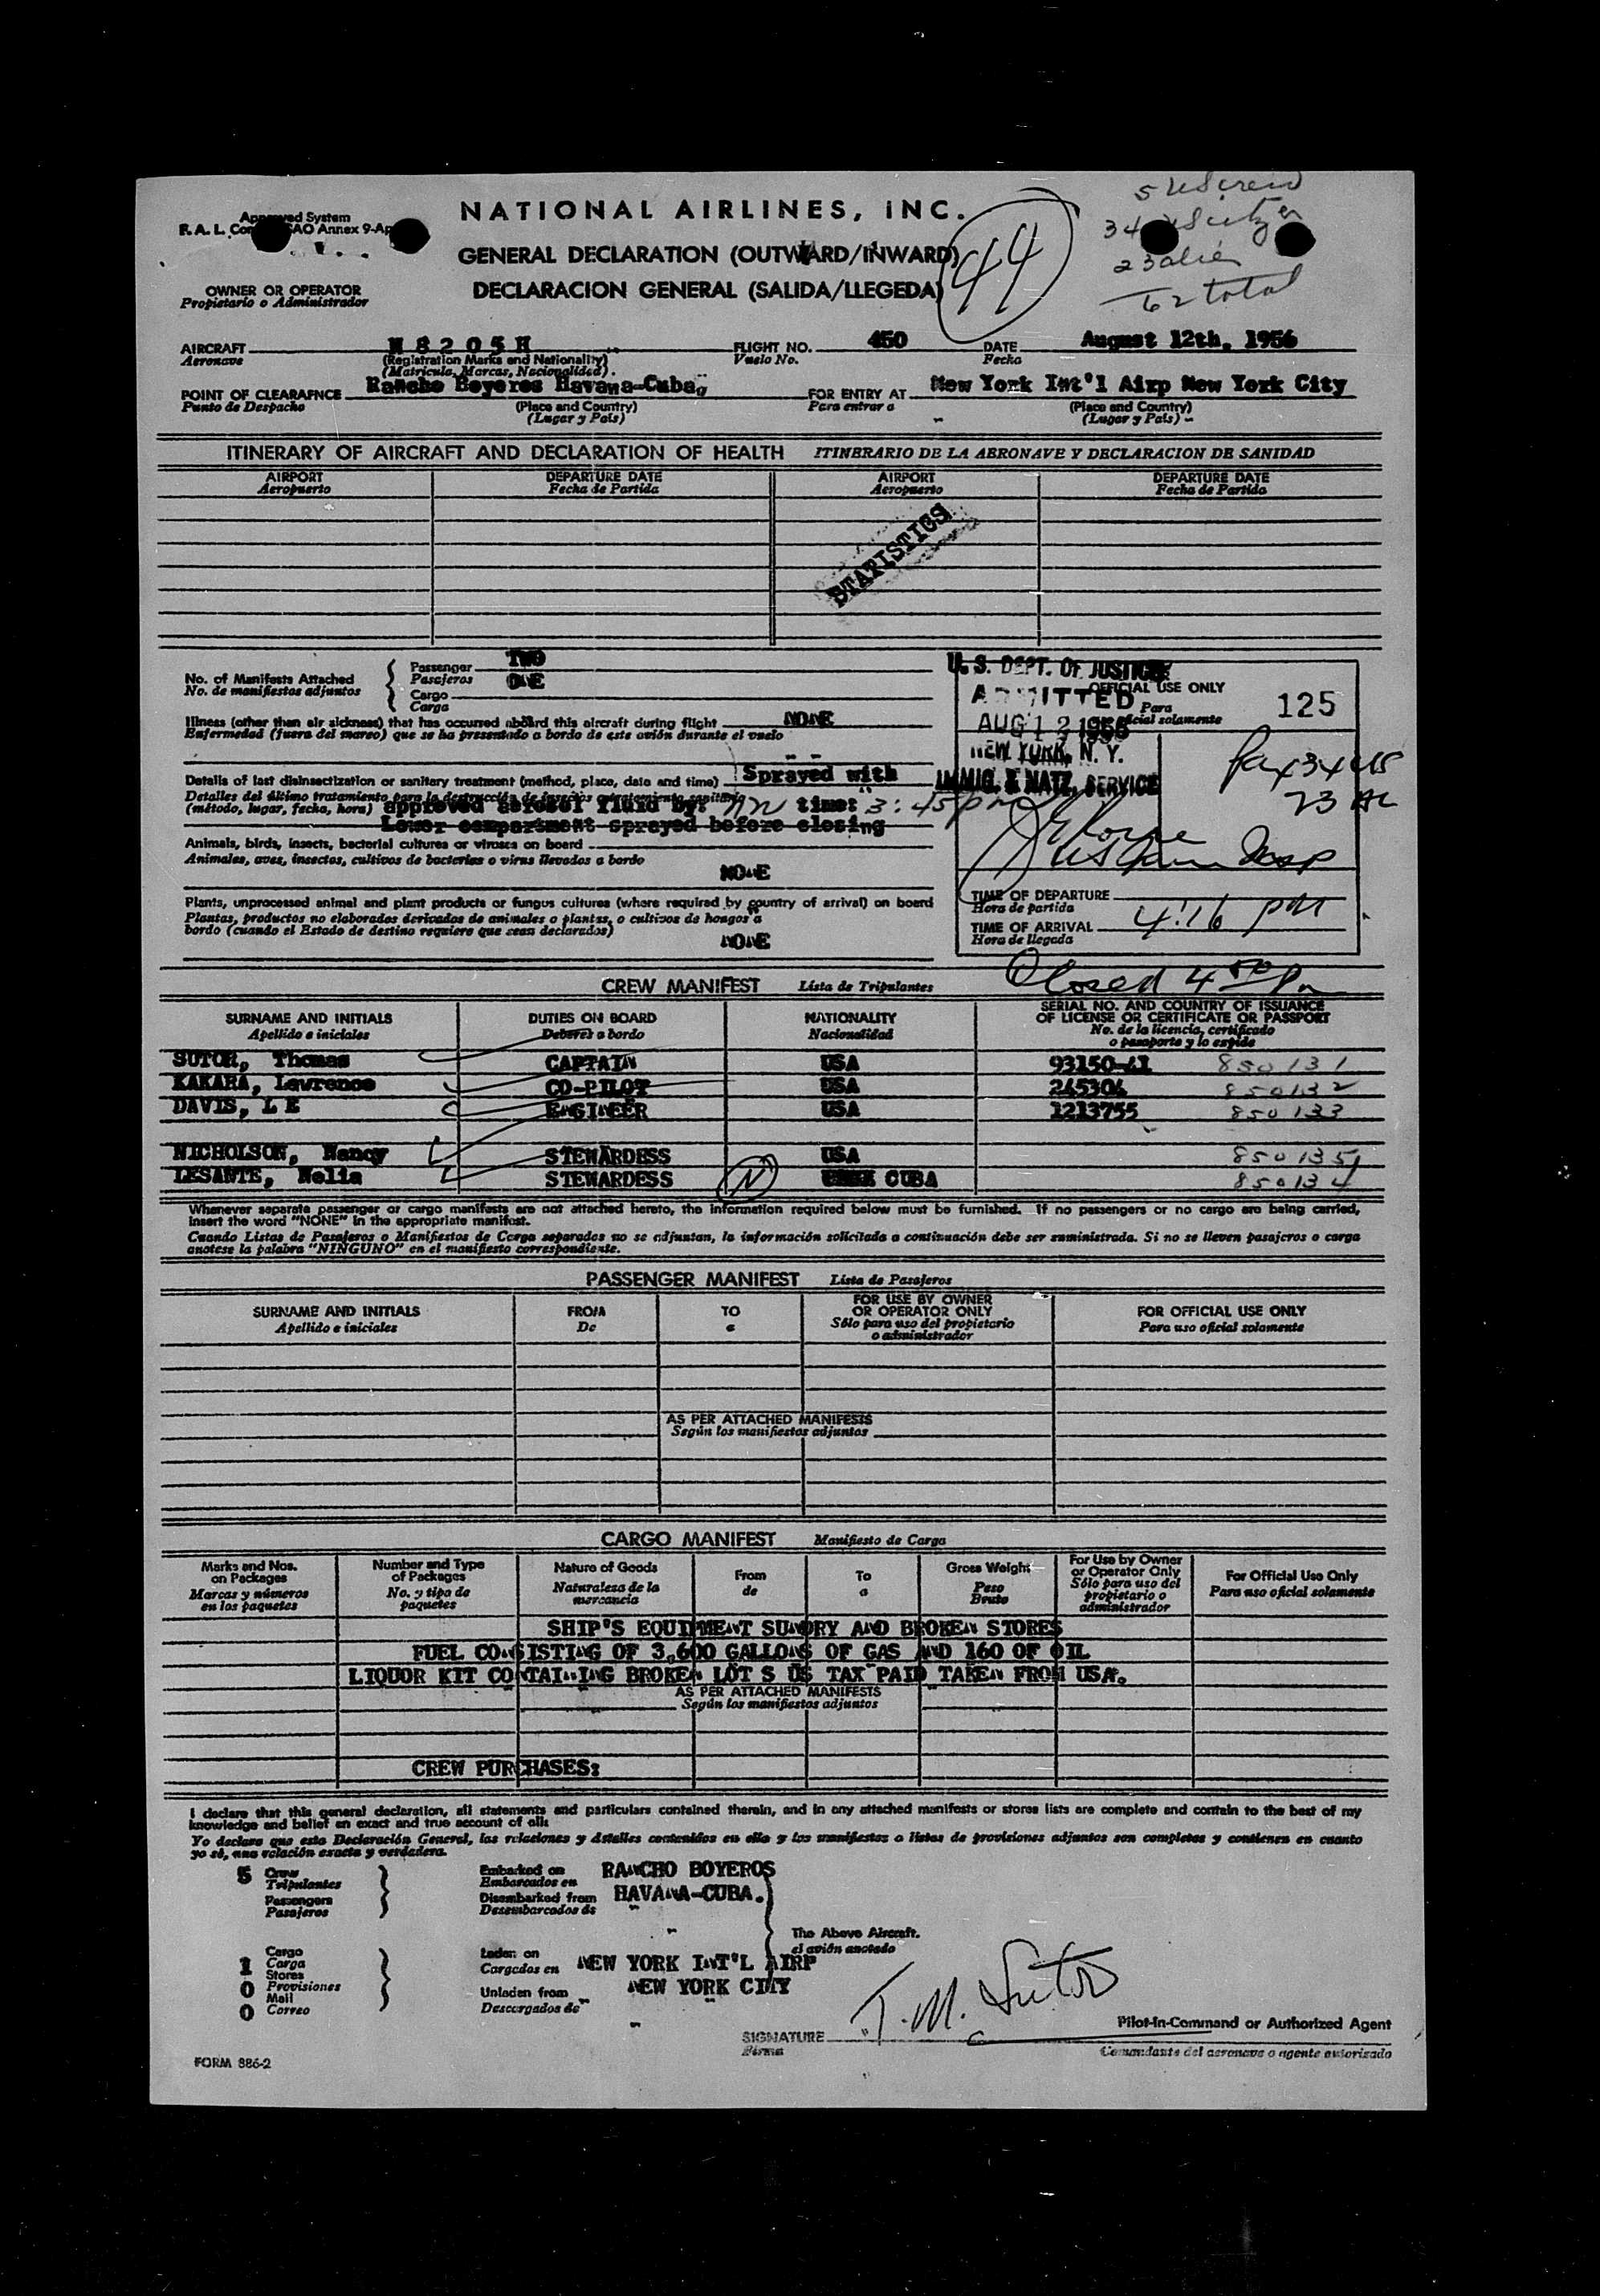 5 US crew
34 US citz
23 alien
62 total
44
Approved System
NATIONAL AIRLINES, INC.
GENERAL DECLARATION (OUTWARD/INWARD)
DECLARACION GENERAL (SALIDA/LLEGEDA)
OWNER OR OPERATOR
Propietario o Administrador
AIRCRAFT N 8 2 0 5 H FLIGHT NO. 450 DATE August 12th, 1956
Aeronave (Registration Marks and Nationality) Vuelo No. Fecha
(Matricula, Marcas, Nacionalidad).
POINT OF CLEARAFNCE Rancho Boyeros Havana-Cuba, FOR ENTRY AT New York Int'l Airp New York City
Punto de Despacho (Place and Country) Para entrar a (Place and Country)
(Lugar y País) (Lugar y País)
ITINERARY OF AIRCRAFT AND DECLARATION OF HEALTH ITINERARIO DE LA AERONAVE Y DECLARACION DE SANIDAD
AIRPORT DEPARTURE DATE AIRPORT DEPARTURE DATE
Aeropuerto Fecha de Partida Aeropuerto Fecha de Partida
STATISTICS
No. of Manifests Attached Passenger TWO
No. de manifiestos adjuntos Pasajeros ONE
Cargo
Carga
U. S. DEPT. OF JUSTICE
ADMITTED OFFICIAL USE ONLY 125
Para
AUG 12 1956 oficial solamente
NEW YORK, N. Y.
IMMIG. & NATZ. SERVICE
Pax 34 US
23 AL
Illness (other than air sickness) that has occurred aboard this aircraft during flight NONE
Enfermedad (fuera del mareo) que se ha presentado a bordo de este avión durante el vuelo
Details of last disinsectization or sanitary treatment (method, place, date and time) Sprayed with
Detalles del último tratamiento para la destrucción de insectos o tratamiento sanitario
(método, lugar, fecha, hora) approved aerosol fluid by: time: 3:45 pm
Lower compartment sprayed before closing
Animals, birds, insects, bacterial cultures or viruses on board
Animales, aves, insectos, cultivos de bacterias o virus llevados a bordo
NONE
Plants, unprocessed animal and plant products or fungus cultures (where required by country of arrival) on board
Plantas, productos no elaborados derivados de animales o plantas, o cultivos de hongos a
bordo (cuando el Estado de destino requiere que sean declarados)
NONE
TIME OF DEPARTURE
Hora de partida
TIME OF ARRIVAL 4:16 PM
Hora de llegada
Closed 4 50 Pm
CREW MANIFEST Lista de Tripulantes
SURNAME AND INITIALS DUTIES ON BOARD NATIONALITY SERIAL NO. AND COUNTRY OF ISSUANCE
OF LICENSE OR CERTIFICATE OR PASSPORT
Apellido e iniciales Deberes a bordo Nacionalidad No. de la licencia, certificado
o pasaporte y lo expide
SUTOR, Thomas CAPTAIN USA 93150-41 850131
KAKARA, Lawrence CO-PILOT USA 245304 850132
DAVIS, L E ENGINEER USA 1213755 850133
NICHOLSON, Nancy STEWARDESS USA 850135
LESANTE, Nelia STEWARDESS N CUBA 850134
Whenever separate passenger or cargo manifests are not attached hereto, the information required below must be furnished. If no passengers or no cargo are being carried,
insert the word "NONE" in the appropriate manifest.
Cuando Listas de Pasajeros o Manifiestos de Carga separados no se adjuntan, la información solicitada a continuación debe ser suministrada. Si no se lleven pasajeros o carga
anotese la palabra "NINGUNO" en el manifiesto correspondiente.
PASSENGER MANIFEST Lista de Pasajeros
SURNAME AND INITIALS FROM TO FOR USE BY OWNER
OR OPERATOR ONLY FOR OFFICIAL USE ONLY
Apellido e iniciales De a Sólo para uso del propietario
o administrador Para uso oficial solamente
AS PER ATTACHED MANIFESTS
Según los manifiestos adjuntos
CARGO MANIFEST Manifiesto de Carga
Marks and Nos.
on Packages
Marcas y números
en los paquetes
Number and Type
of Packages
No. y tipo de
paquetes
Nature of Goods
Naturaleza de la
mercancia
From
de
To
a
Gross Weight
Peso
Bruto
For Use by Owner
or Operator Only
Sólo para uso del
propietario o
administrador
For Official Use Only
Para uso oficial solamente
SHIP'S EQUIPMENT SUNDRY AND BROKEN STORES
FUEL CONSISTING OF 3,600 GALLONS OF GAS AND 160 OF OIL
LIQUOR KIT CONTAINING BROKEN LOT S US TAX PAID TAKEN FROM USA.
AS PER ATTACHED MANIFESTS
Según los manifiestos adjuntos
CREW PURCHASES:
I declare that this general declaration, all statements and particulars contained therein, and in any attached manifests or stores lists are complete and contain to the best of my
knowledge and belief an exact and true account of all:
Yo declaro que esta Declaración General, las relaciones y detalles contenidos en ella y los manifiestos o listas de provisiones adjuntos son completos y contienen en cuanto
yo sé, una relación exacta y verdadera.
5 Crew
Tripulantes
Passengers
Pasajeros
Embarked on RANCHO BOYEROS
Embarcados en
Disembarked from HAVANA-CUBA.
Desembarcados de
The Above Aircraft.
el avión anotado
Cargo
1 Carga
Stores
0 Provisiones
Mail
0 Correo
Laden on
Cargados en NEW YORK INT'L AIRP
Unladen from NEW YORK CITY
Descargados de
T. M. Sutor
SIGNATURE Pilot-in-Command or Authorized Agent
Firma Comandante del aeronave o agente autorizado
FORM 886-2